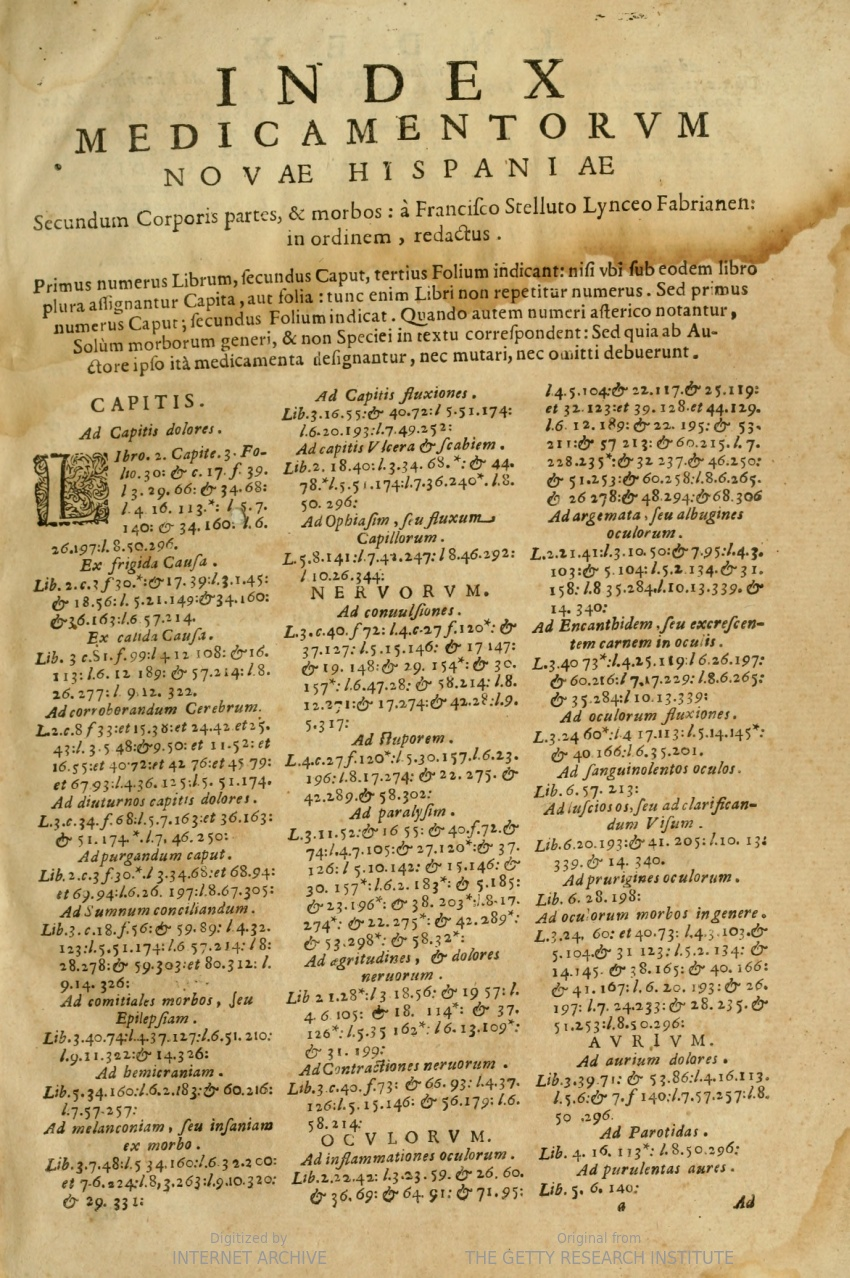 INDEX
MEDICAMENTORVM
NOVAE HISPANIAE
Secundum Corporis partes, & morbos : à Franciſco Stelluto Lynceo Fabrianen:
in ordinem , redactus .
Primus numerus Librum, ſecundus Caput, tertius Folium indicant: niſi vbi ſub eodem libro
plura aſſignantur Capita, aut folia : tunc enim Libri non repetitur numerus. Sed primus
numerus Caput; ſecundus Folium indicat. Quando autem numeri aſterico notantur,
Solùm morborum generi, & non Speciei in textu correſpondent: Sed quia ab Au-
ctore ipſo ità medicamenta deſignantur, nec mutari, nec omitti debuerunt.
CAPITIS.
Ad Capitis dolores.
LIbro. 2. Capite. 3. Fo-
lio. 30: & c. 17. f 39.
l 3. 29. 66: & 34.68:
l 4 16. 113.*: l 5.7.
140: & 34. 160: l.6.
26.197:l. 8.50.296.
Ex frigida Cauſa .
Lib. 2.c.3 f 30.*:&17. 39:l.3.1.45:
& 18.56:l. 5.21.149:&34.160:
&36.163:l.6 57.214.
Ex calida Cauſa.
Lib. 3 c.51.f.99:l 4 12 108: &16.
113:l.6. 12 189: & 57.214:l.8.
26.277:l 9.12. 322.
Ad corroborandum Cerebrum.
L.2.c.8 f 33:et 15.38:et 24.42 et 25.
43:l. 3.5 48:&9.50: et 11.52: et
16.55:et 40.72:et 42 76:et 45 79:
et 67 93:l.4.36. 125:l.5. 51.174.
Ad diuturnos capitis dolores.
L.3.c.34.f 68:l.5.7.163:et 36.163:
& 51.174.*.l.7. 46.250:
Ad purgandum caput.
Lib.2.c.3 f 30.*.l 3.34.68:et 68.94:
et 69.94:l.6.26. 197:l.8.67.305:
Ad Sumnum conciliandum.
Lib.3. c.18.f.56:& 59.89: l 4.32.
123:l.5.51.174:l.6 57.214: l 8:
28.278:& 59.303:et 80.312: l.
9.14. 326:
Ad comitiales morbos, ſeu
Epilepſiam.
Lib.3.40.74:l.4.37.127:l.6.51. 210:
l.9.11.322:& 14.326:
Ad hemicraniam .
Lib.5.34.160:l.6.2.183:& 60.216:
l.7.57.257:
Ad melanconiam , ſeu inſaniam
ex morbo .
Lib.3.7.48:l.5 34.160:l.6.3 2.200:
et 7.6.224:l.8,3.263:l.9.10.320:
& 29. 331:
Ad Capitis fluxiones.
Lib.3.16.55:& 40.72:l 5.51.174:
l.6.20.193:l.7.49.252:
Ad capitis Vlcera & ſcabiem.
Lib.2. 18.40:l.3.34. 68.*: & 44.
78.*l.5.51.174:l.7.36.240*. l.8.
50. 296:
Ad Ophiaſim , ſeu fluxum
Capillorum.
L.5.8.141:l 7.42.247: l 8.46.292:
l 10.26.344:
NERVORVM.
Ad conuulſiones.
L.3.c.40.f 72: l.4.c.27 f.120*: &
37.127:l.5.15.146: & 17 147:
& 19. 148:& 29. 154*: & 30.
157*:l.6.47.28: & 58.214: l.8.
12.271:& 17.274:& 42.28:l.9.
5.317:
Ad ſtuporem.
L.4.c.27 f.120*:l 5.30.157.l.6.23.
196:l.8.17.274: & 22. 275. &
42.289.& 58.302:
Ad paralyſim.
L.3.11.52:& 16 55: & 40.f.72.&
74:l.4.7.105:& 27.120*:& 37.
126:l 5.10.142: & 15.146: &
30. 157*:l.6.2. 183*: & 5.185:
& 23.196*: & 38. 203*:l.8.17.
274*: & 22.275*: & 42.289*:
& 53.298*: & 58.32*:
Ad ægritudines , & dolores
neruorum .
Lib 2 1.28*:l 3 18.56: & 19 57: l.
4 6 105: & 18. 114*: & 37.
126*:l.5.35 162*: l 6. 13.109*:
& 31. 199:
Ad Contractiones neruorum .
Lib.3 c.40.f.73: & 66.93: l.4.37.
126:l.5.15.146: & 56.179: l.6.
58.214:
OCVLORVM.
Ad inflammationes oculorum.
Lib.2.22.42: l.3.23.59. & 26. 60.
& 36.69: & 64 91: & 71.95:
l 4.5.104:& 22.117.& 25.119:
et 32.123:et 39. 128.et 44.129.
l.6. 12. 189: & 22. 195: & 53.
211:& 57 213: & 60.215.l.7.
228.235*:& 32 237.& 46.250:
& 51.253:& 60.258:l.8.6.265.
& 26 278:& 48.294:& 68.306
Ad argemata , ſeu albugines
oculorum.
L.2.21.41:l.3.10.50:& 7.95:l.4.3.
103:& 5.104:l.5.2.134.& 31.
158:l.8 35.284.l.10.13.339. &
14. 340:
Ad Encanthidem ,ſeu excreſcen-
tem carnem in oculis.
L.3.40 73*:l.4.25.119:l 6.26.197:
& 60.216:l 7.17.229: l.8.6.265:
& 35.284:l 10.13.339:
Ad oculorum fluxiones.
L.3.24 60*:l 4 17.113:l.5.14.145*:
& 40.166:l.6.35.201.
Ad ſanguinolentos oculos.
Lib.6.57. 213:
Ad luſcioſos,ſeu ad clarifican-
dum Viſum .
Lib.6.20.193:& 41. 205:l.10. 13:
339.& 14. 340.
Ad prurigines oculorum .
Lib. 6. 28.198:
Ad oculorum morbos in genere.
L.3.24. 60: et 40.73: l.4.3.103.&
5.104.& 31 123: l.5.2. 134: &
14.145. & 38.165: & 40. 166:
& 41. 167:l. 6. 20. 193:& 26.
197: l.7. 24.233:& 28.235.&
51.253:l.8.50.296:
AVRIVM.
Ad aurium dolores .
Lib.3.39.71: & 53.86:l.4.16.113.
l.5.6:& 7.f 140:l.7.57.257:l.8.
50 .296.
Ad Parotidas .
Lib. 4. 16. 113*: l.8.50.296:
Ad purulentas aures .
Lib. 5. 6. 140:
a
Ad
Digitized by
INTERNET ARCHIVE
Original from
THE GETTY RESEARCH INSTITUTE